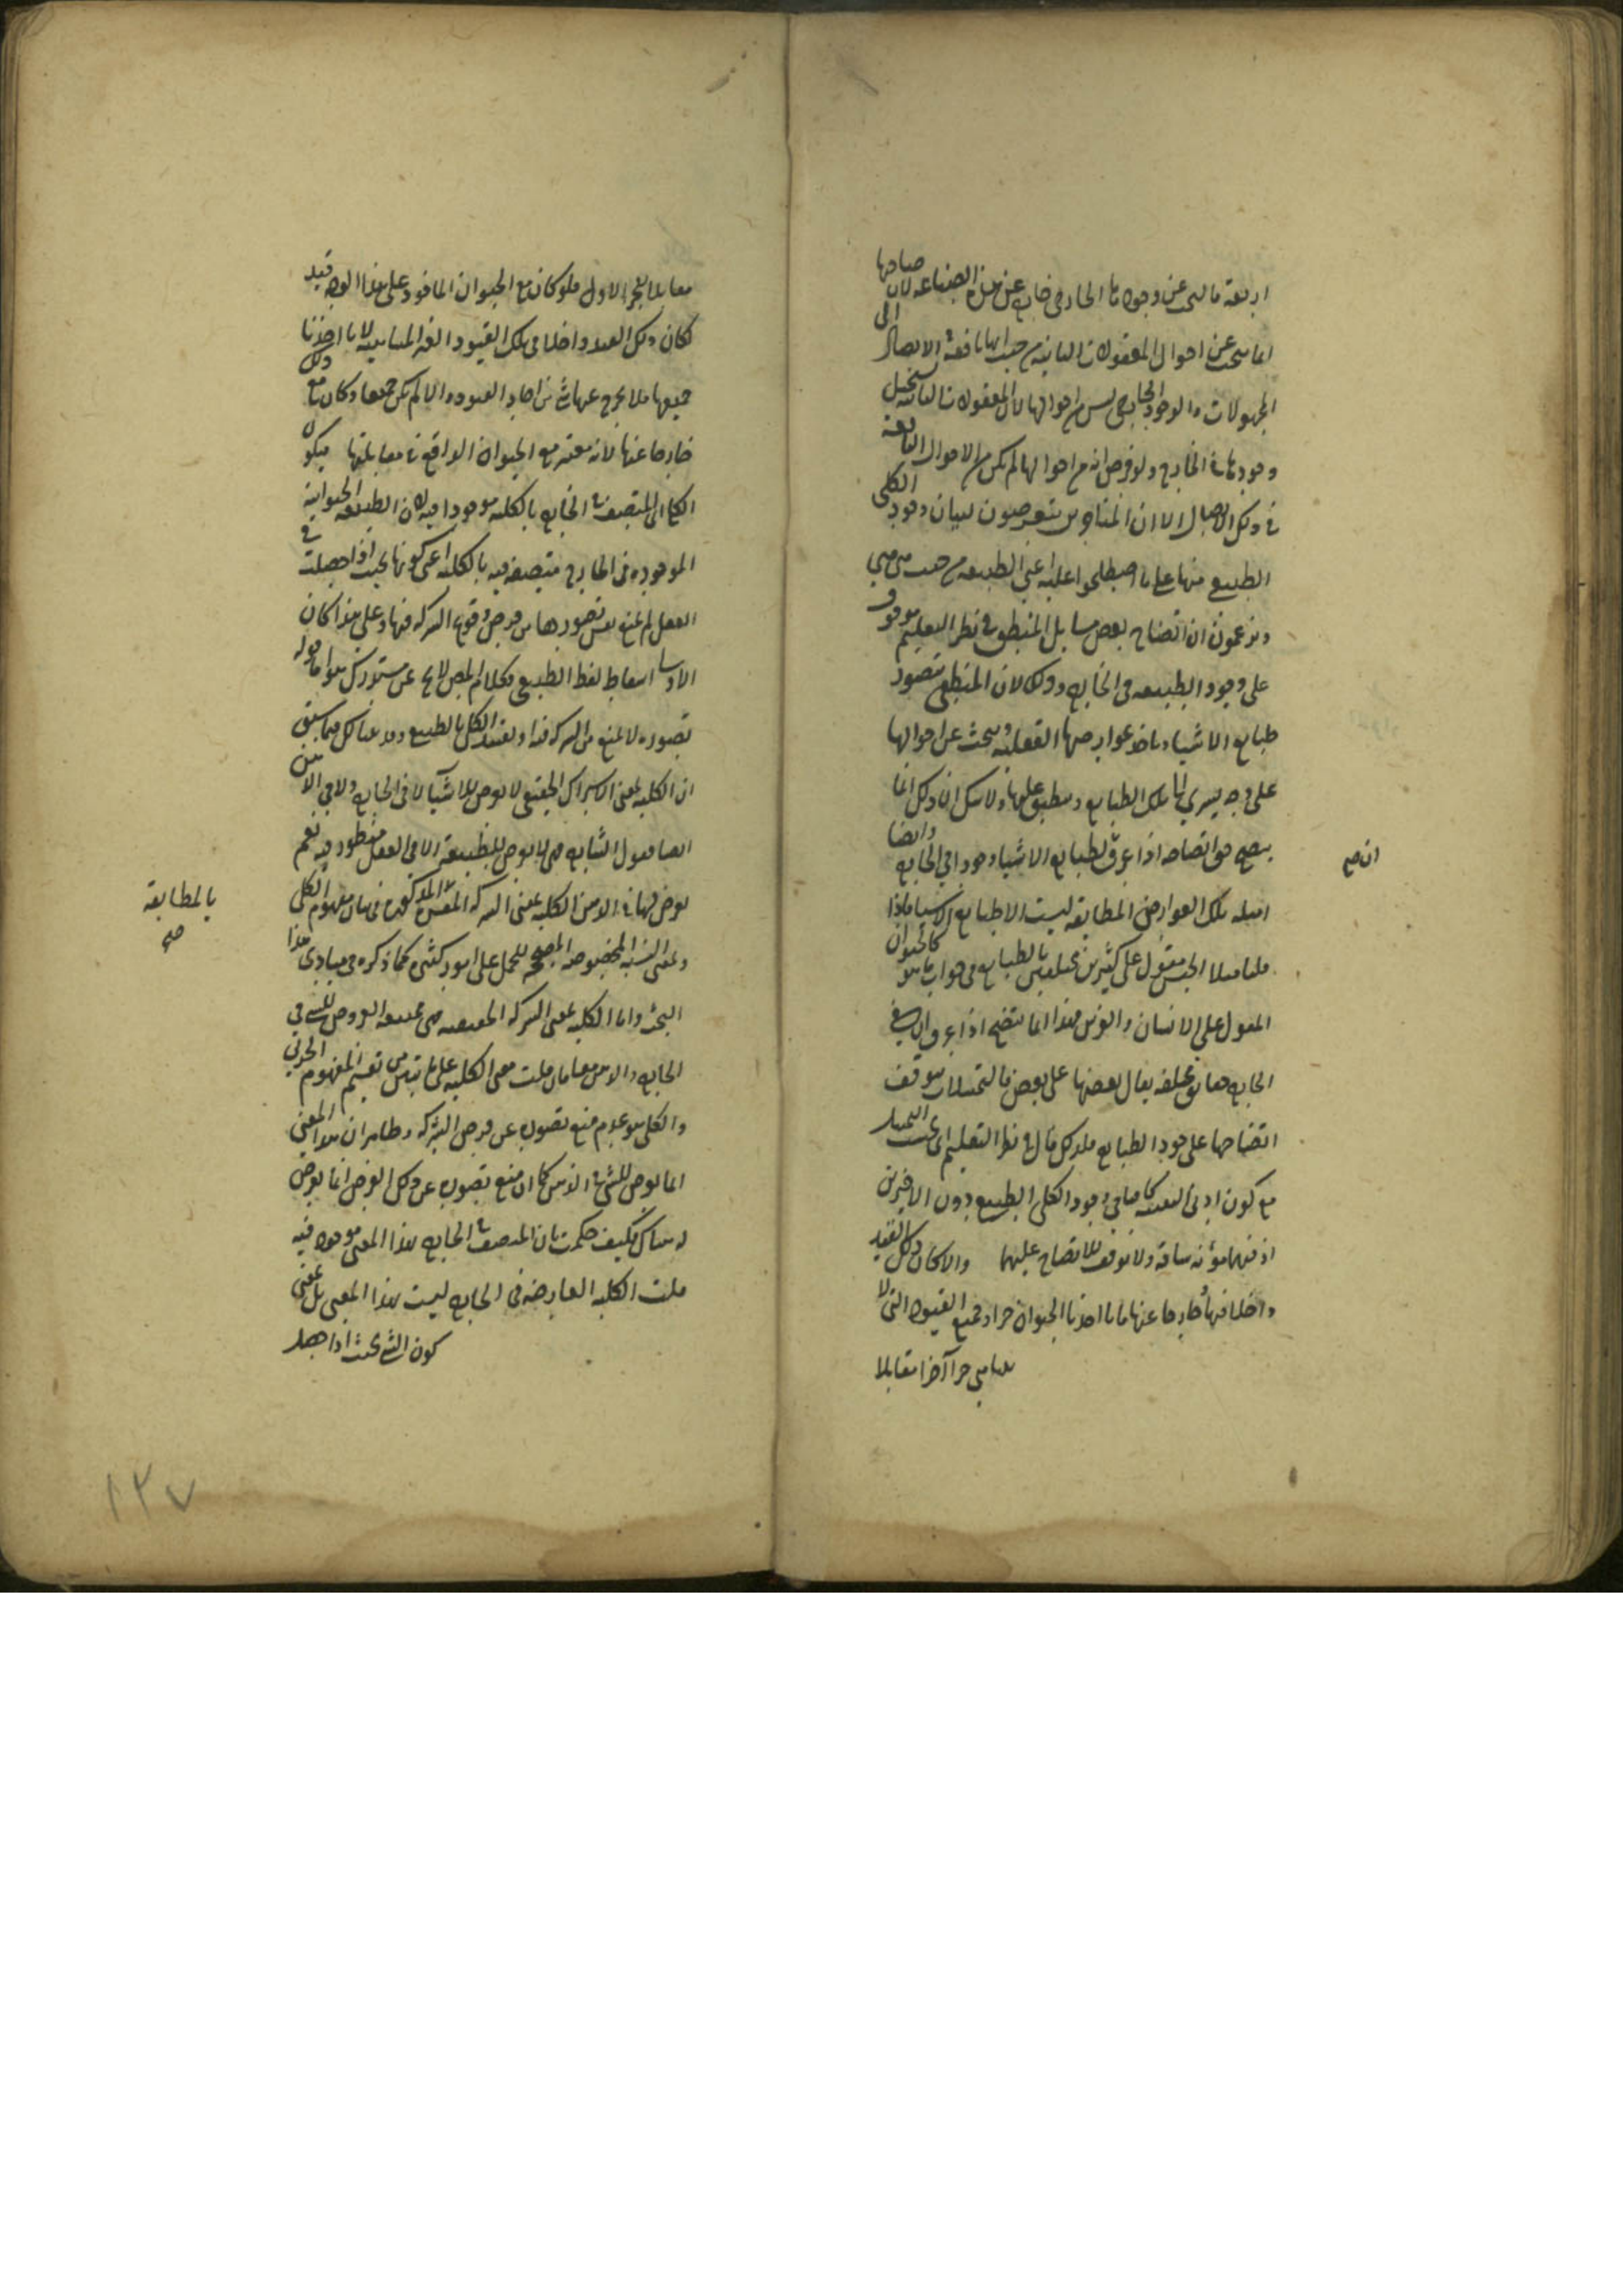 اربعة فالبحث عن وجود ما الخارجى خارج عن هذه الصناعه لان صاحبها
انما يبحث عن احوال المعقولات الثانية من حيث انها نافعة فى الايصال الى
المجهولات والوجود الخارجى ليس من احوالها لان المعقولات الثانية يستحيل
وجودها فى الخارج ولو فرض انه من احوالها لم يكن من الاحوال النافعة
فى ذلك الايصال الا ان المتاخرين يتعرضون لبيان وجود الكلى
الطبيعى منها على ما اصطلحوا عليه اعنى الطبيعه من حيث هى هى
ويزعمون ان اتضاح بعض مسايل المنطق فى نظر التعليم موقوف
على وجود الطبيعه فى الخارج وذلك لان المنطقى يتصور
طبايع الاشياء وياخذ عوارضها العقليه ويبحث عن احوالها
على وجه يسرى الى تلك الطبايع وينطبق عليها ولا شك ان ذلك انما
يتضح حق اتضاحه اذا عرف ان لطبايع الاشياء وجودا فى الخارج وايضا
ان صح
امثله تلك العوارض المطابقه ليست الا طبايع الاشياء فاذا
قلنا مثلا الجنس مقول على كثيرين مختلفين بالطبايع فى جواب ما هو كالحيوان
المقول على الانسان والفرس فهذا انما يتضح اذا عرف ان فى
الخارج حقايق مختلفه يقال بعضها على بعض فالتمثيلات يتوقف
اتضاحها على وجود الطبايع فلذلك قال فى نظر التعليم اى بحث التمثيل
مع كون ادنى التفات كافيا فى وجود الكلى الطبيعى دون الاخيرين
اذ فيهما مؤنه شاقه ولا توقف للاتضاح عليهما والا لكان ذلك القيد
داخلا فيها خارجا عنها فانا اخذنا الحيوان جزا وجميع القيود التى لا
تتناهى جزا آخرا مقابلا
مقابلا للجزء الاول فلو كان مع الحيوان الماخوذ على هذا الوجه قيد
لكان ذلك القيد داخلا فى تلك القيود الغير المتناهيه لانا اخذنا
جميعها فلا يخرج عنها شئ من احاد القيود والا لم يكن جميعا وكان مع ذلك
خارجا عنها لانه معتبر مع الحيوان الواقع فى مقابلتها فيكون
الكلى اى المتصف فى الخارج بالكليه موجودا فيه لان الطبيعه الحيوانية
الموجوده فى الخارج متصفه فيه بالكليه اعنى كونها بحيث اذا حصلت فى
العقل لم يمنع نفس تصورها من فرض وقوع الشركه فيها وعلى هذا كان
الاولى اسقاط لفظ الطبيعى فكلام المص لا يخ عن مستدرك هو اما قوله
تصوره لا يمنع من الشركه فيه او تقييد الكلى بالطبيعى وقد بينا لك فيما سبق
ان الكليه بمعنى الاشتراك الحقيقى لا يعرض للاشياء لا فى الخارج ولا فى الذهن
ايضا فقول الشارح هى لا يعرض للطبيعه الا فى العقل منظور فيه نعم
يعرض لها فى الذهن الكليه بمعنى الشركه المفسره المذكوره فى بيان مفهوم الكلى
بالمطابقة
صح
وبمعنى النسبه المخصوصه المصححه للحمل على امور كثيره كما ذكره فى مبادى هذا
البحث واما الكليه بمعنى الشركه الحقيقيه فهى ممتنعه العروض للشئ فى
الخارج والذهن معا فان قلت معنى الكليه على ما تبين من تقسيم المفهوم الى الجزئى
والكلى هو عدم منع تصوره عن فرض الشركه وظاهر ان هذا المعنى
انما يعرض للشئ فى الذهن كما ان منع تصوره عن ذلك الفرض انما يعرض
له هناك فكيف حكمت بان المتصف فى الخارج بهذا المعنى موجود فيه
قلت الكليه العارضه فى الخارج ليست بهذا المعنى بل بمعنى
كون الشئ بحيث اذا حصل
١٣٧